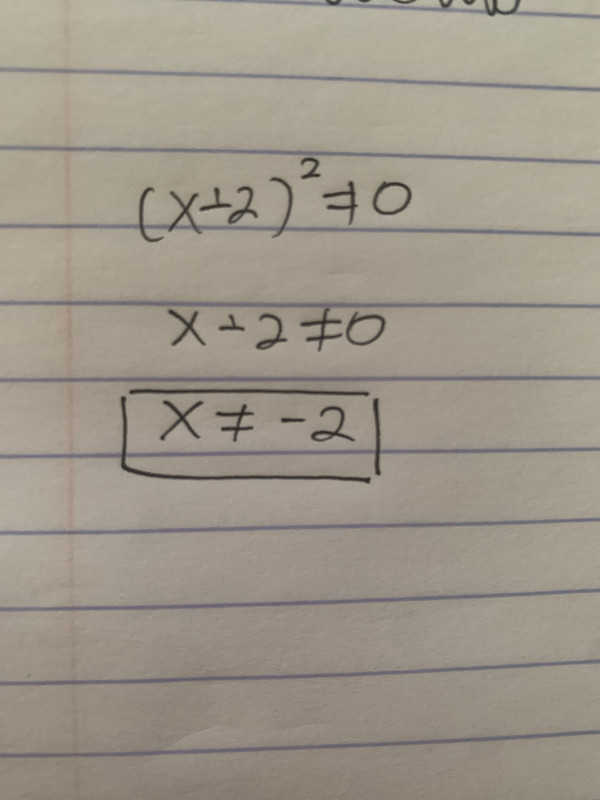 (x+2)² ≠ 0
x+2 ≠ 0
x ≠ -2